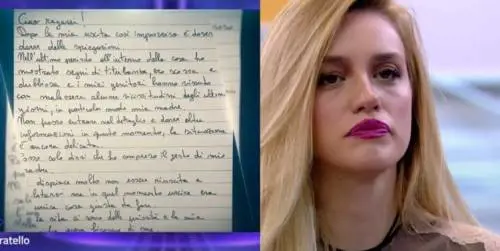 Ciao ragazzi!
Dopo la mia uscita così improvvisa è doveroso
darvi delle spiegazioni.
Nell'ultimo periodo all'interno della casa ho
mostrato segni di titubanza, ero scossa e
dubbiosa e i miei genitori hanno vissuto
con malessere alcune vicissitudini degli ultimi
giorni, in particolar modo mia madre.
Non posso entrare nel dettaglio e darvi altre
informazioni in questo momento, la situazione
è ancora delicata.
Posso solo dirvi che ho compreso il gesto di mia
madre.
dispiace molto non essere riuscita a
ma in quel momento uscire era
unica cosa giusta da fare
la vita si sono delle priorità e la mia
ha avuto bisogno di me
ratello